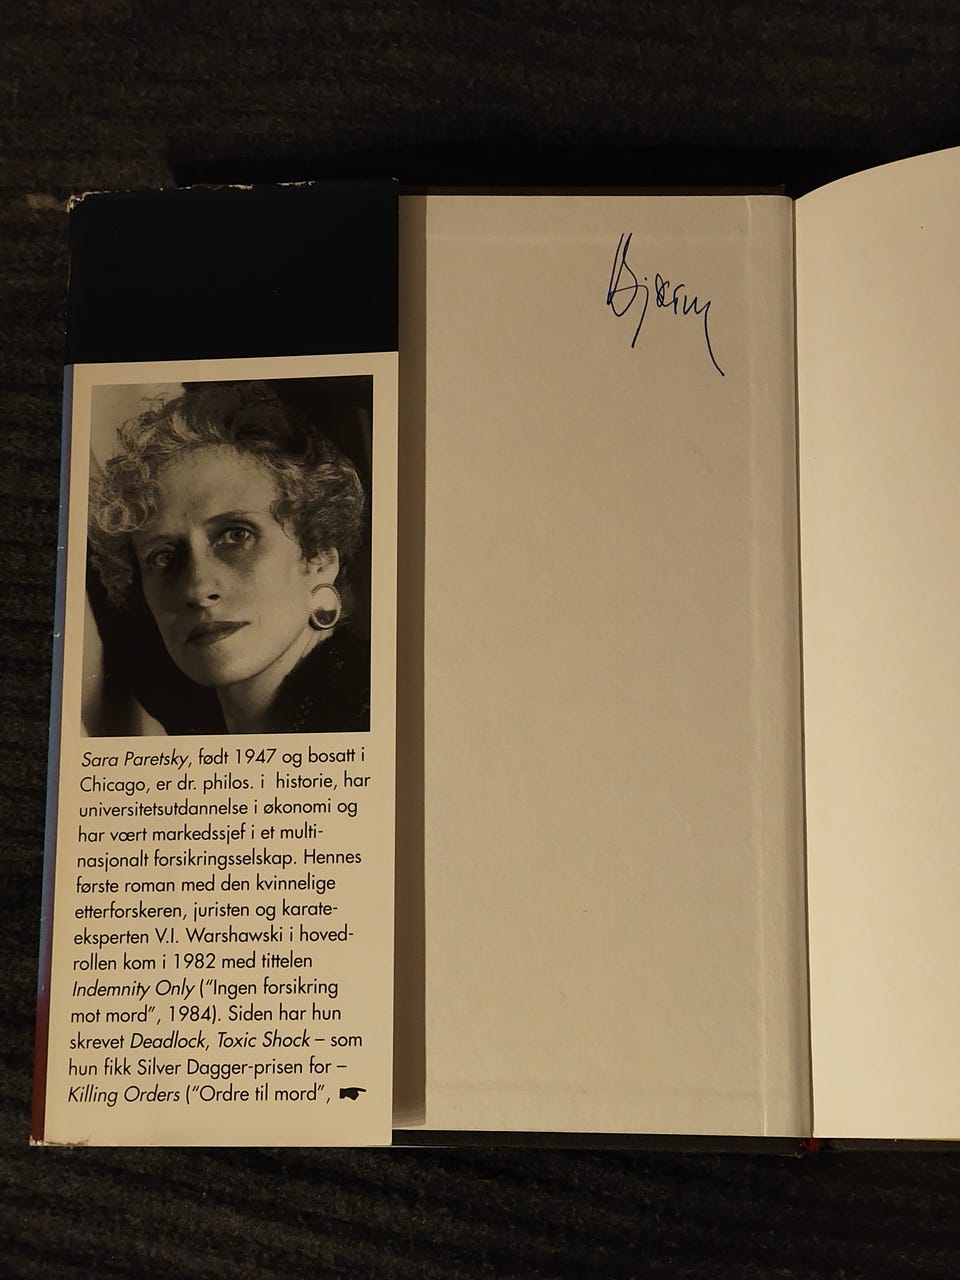 Sara Paretsky, født 1947 og bosatt i
Chicago, er dr. philos. i historie, har
universitetsutdannelse i økonomi og
har vært markedssjef i et multi-
nasjonalt forsikringsselskap. Hennes
første roman med den kvinnelige
etterforskeren, juristen og karate-
eksperten V.I. Warshawski i hoved-
rollen kom i 1982 med tittelen
Indemnity Only ("Ingen forsikring
mot mord", 1984). Siden har hun
skrevet Deadlock, Toxic Shock – som
hun fikk Silver Dagger-prisen for –
Killing Orders ("Ordre til mord",